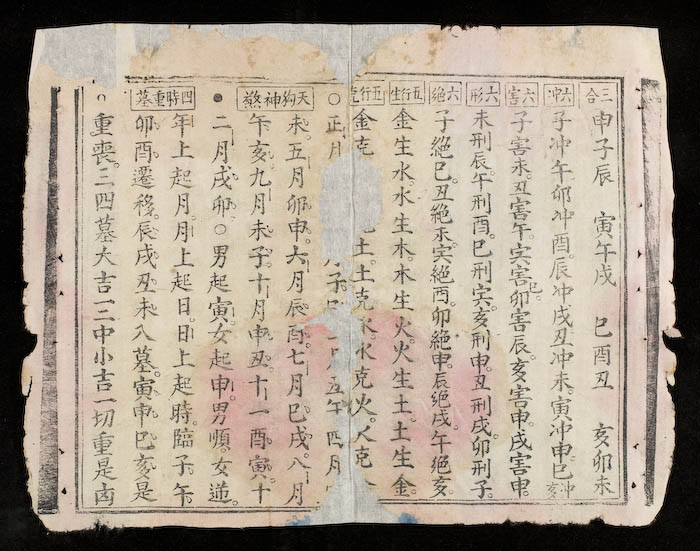 三合 申子辰 寅午戌 巳酉丑 亥卯未
六冲 子冲午卯冲酉。辰冲戌丑冲未。寅冲申巳冲亥
六害 子害未。丑害午。寅害巳。卯害辰。亥害申。戌害申。
六形 未刑辰。午刑酉。巳刑寅。亥刑申。丑刑戌。卯刑子。
六絶 子絶巳。丑絶未。寅絶酉。卯絶申。辰絶戌。午絶亥。
五行生 金生水。水生木。木生火。火生土。土生金。
五行克 金克 土。土克水。水克火。火克
○正月 月子 五午 四月
天狗神殺 未。五月卯申。六月辰酉。七月巳戌。八月
午亥。九月未子。十月申丑。十一酉寅。十
二月戌卯。○男起寅。女起申。男順。女逆。
年上起月。月上起日。日上起時。臨子午
四時重墓 卯酉遷移。辰戌丑未入墓。寅申巳亥是
重喪。三四墓大吉一二中小吉一切重是凶